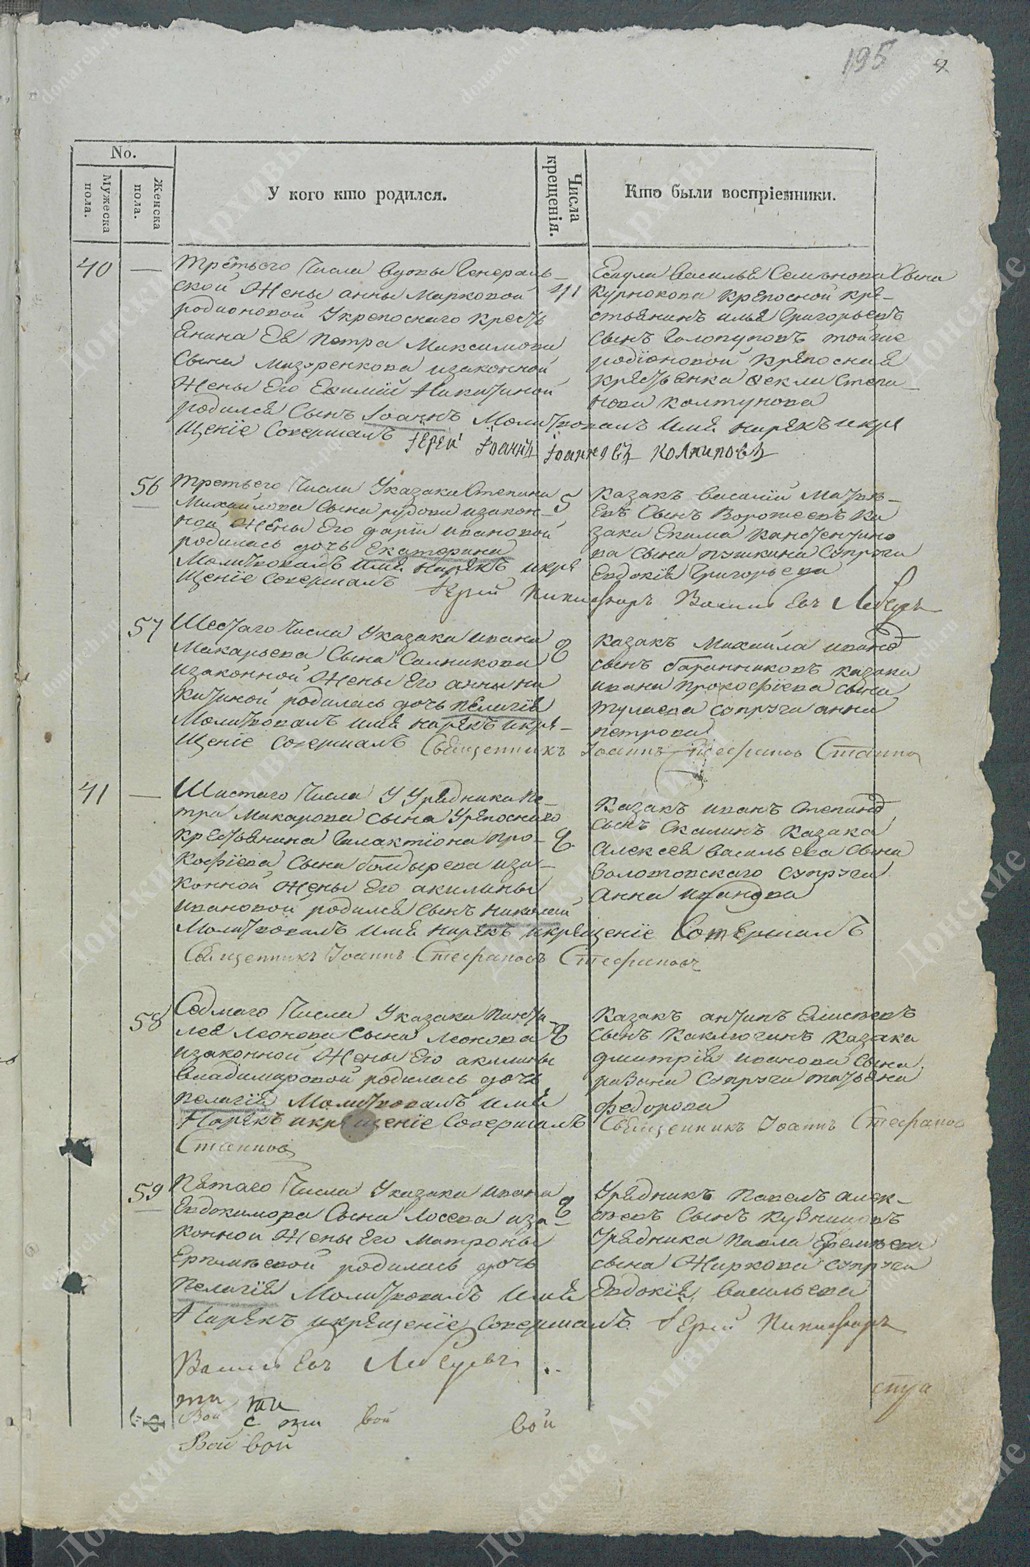 195
No.
Мужеска пола.
Женска пола.
У кого кто родился.
Числа крещенія.
Кто были воспріемники.
40 — третьего Числа вдовы Генераль-
ской Жены анны Марковой
родионовой Укрепоснаго кресть
янина Ея Петра Максимова
Сына Мазуренкова изаконной
Жены Его Евфимии Никитиной
родился Сынъ Іоаннъ Молитвовалъ имя нарекъ икре
щеніе Совершалъ Іерей Іоаннъ Іоанновъ
Есаула василья Семенова Сына
Курнокова Крепосной кре-
стьянинъ илья Григорьевъ
Сынъ Голопуповъ тойже
родіоновой Крепосная
крестьянка Фекла Степа-
нова Колтунова
56 третьего Числа Указака Степана
Михайлова Сына рудова изакон-
ной Жены Его дарьи ивановой
родилась дочь Екатерина
Молитвовалъ имя нарекъ икре
щеніе Совершалъ
5
Казакъ василій Матве-
евъ Сынъ Ворожеевъ Ка
зака Екима Констентино
ва Сына пушкина Супруга
Евдокія Григорьева
57 Шестаго Числа Указака ивана
Макарьева Сына Сальникова
изаконной Жены Его анны ни
китиной родилась дочь Пелагія
Молитвовалъ имя нарекъ икре-
щеніе Совершалъ Священникъ Іоаннъ Стефановъ
8
Казакъ Михайла ивановъ
Сынъ баранниковъ казака
ивана Прокофіева Сына
тулаева Супруга анна
петрова
41 — Шестаго Числа У Урядника Пе-
тра Макарова Сына Укрепоснаго
крестьянина Галактіона Про-
кофіева Сына болдырева иза-
конной Жены Его акилины
ивановой родился Сынъ Николай
Молитвовалъ имя нарекъ икрещеніе Совершалъ
Священникъ Іоаннъ Стефановъ Стефановъ
8
Казакъ иванъ Степановъ
Сынъ Скалинъ Казака
Алексея васильева Сына
болотовскаго Супруга
Анна иванова
58 Седмаго Числа Указака Панте-
лея Леонова Сына Леонова
изаконной Жены Его акилины
владимировой родилась дочь
Пелагія Молитвовалъ имя
Нарекъ икрещеніе Совершалъ Священникъ Іоаннъ Стефановъ
8
Казакъ антипъ Елисеевъ
Сынъ Каклюгинъ Казака
дмитрія иванова Сына
разина Супруга татьяна
федорова
59 Пятаго Числа Указака ивана
Евдокимова Сына Лосева иза-
конной Жены Его Матроны
Ермолаевой родилась дочь
Пелагія Молитвовалъ имя
Нарекъ икрещеніе Совершалъ Іерей
8
Урядникъ Павелъ алек-
сеевъ Сынъ Кузнецовъ
Урядника Павла Ефимьева
сына Жиркова Супруга
Евдокія васильева
Вой
вой
вой
Вой вой